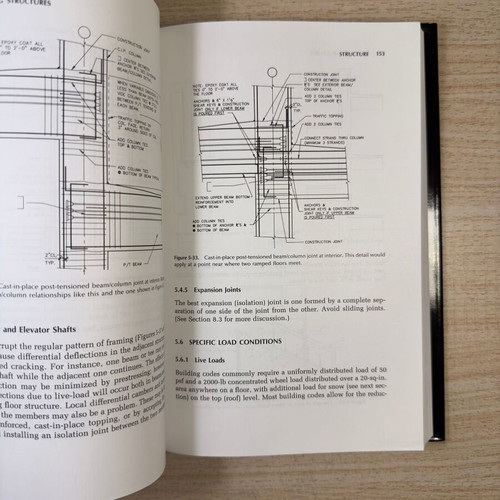 STRUCTURES
EPOXY COAT ALL
0" TO 2'-0" ABOVE
FLOOR
CONSTRUCTION JOINT
C.I.P. COLUMN
CENTER BETWEEN
ADD COLUMN TIES
TOP & BOTTOM
ADD COLUMN TIES
BOTTOM OF BEAM
2"CL.
P/T BEAM
Cast-in-place post-tensioned beam/column joint at interior
/column relationships like this and the one shown in Figure
and Elevator Shafts
rrupt the regular pattern of framing (Figures
ause differential deflections in the adjacent
ed cracking. For instance, one beam or tee
haft while the adjacent one continues. The
ction may be minimized by prestressing,
ections due to live-load will occur both in
g floor structure. Local differential cambers and
the members may also be a problem. These
nforced, cast-in-place topping, or by accepting
installing an isolation joint between the two
STRUCTURE 153
NOTE: EPOXY COAT ALL
TIES 0" TO 2'-0" ABOVE
THE FLOOR
ANCHORS & SHEAR KEYS & CONSTRUCTION
JOINT ONLY IF LOWER BEAM
IS POURED FIRST
CONSTRUCTION JOINT
CENTER BETWEEN ANCHOR
SEE EXTERIOR BEAM/
COLUMN DETAIL
ADD 2 COLUMN TIES
TOP OF ANCHOR
TRAFFIC TOPPING
ADD 2 COLUMN TIES
CONNECT STRAND THRU COLUMN
(MINIMUM 2 STRANDS)
EXTEND UPPER BEAM BOTTOM
REINFORCEMENT INTO
LOWER BEAM
ADD COLUMN TIES
BOTTOM OF ANCHOR
BOTTOM OF BEAM
ANCHORS
SHEAR KEYS & CONSTRUCTION
JOINT ONLY IF UPPER BEAM
IS POURED FIRST
CONSTRUCTION JOINT
Figure 5-33. Cast-in-place post-tensioned beam/column joint at interior. This detail would
apply at a point near where two ramped floors meet.
5.4.5 Expansion Joints
The best expansion (isolation) joint is one formed by a complete sep-
aration of one side of the joint from the other. Avoid sliding joints.
(See Section 8.3 for more discussion.)
5.6 SPECIFIC LOAD CONDITIONS
5.6.1 Live Loads
Building codes commonly require a uniformly distributed load of 50
psf and a 2000-lb concentrated wheel load distributed over a 20-sq-in.
area anywhere on a floor, with additional load for snow (see next sec-
tion) on the top (roof) level. Most building codes allow for the reduc-